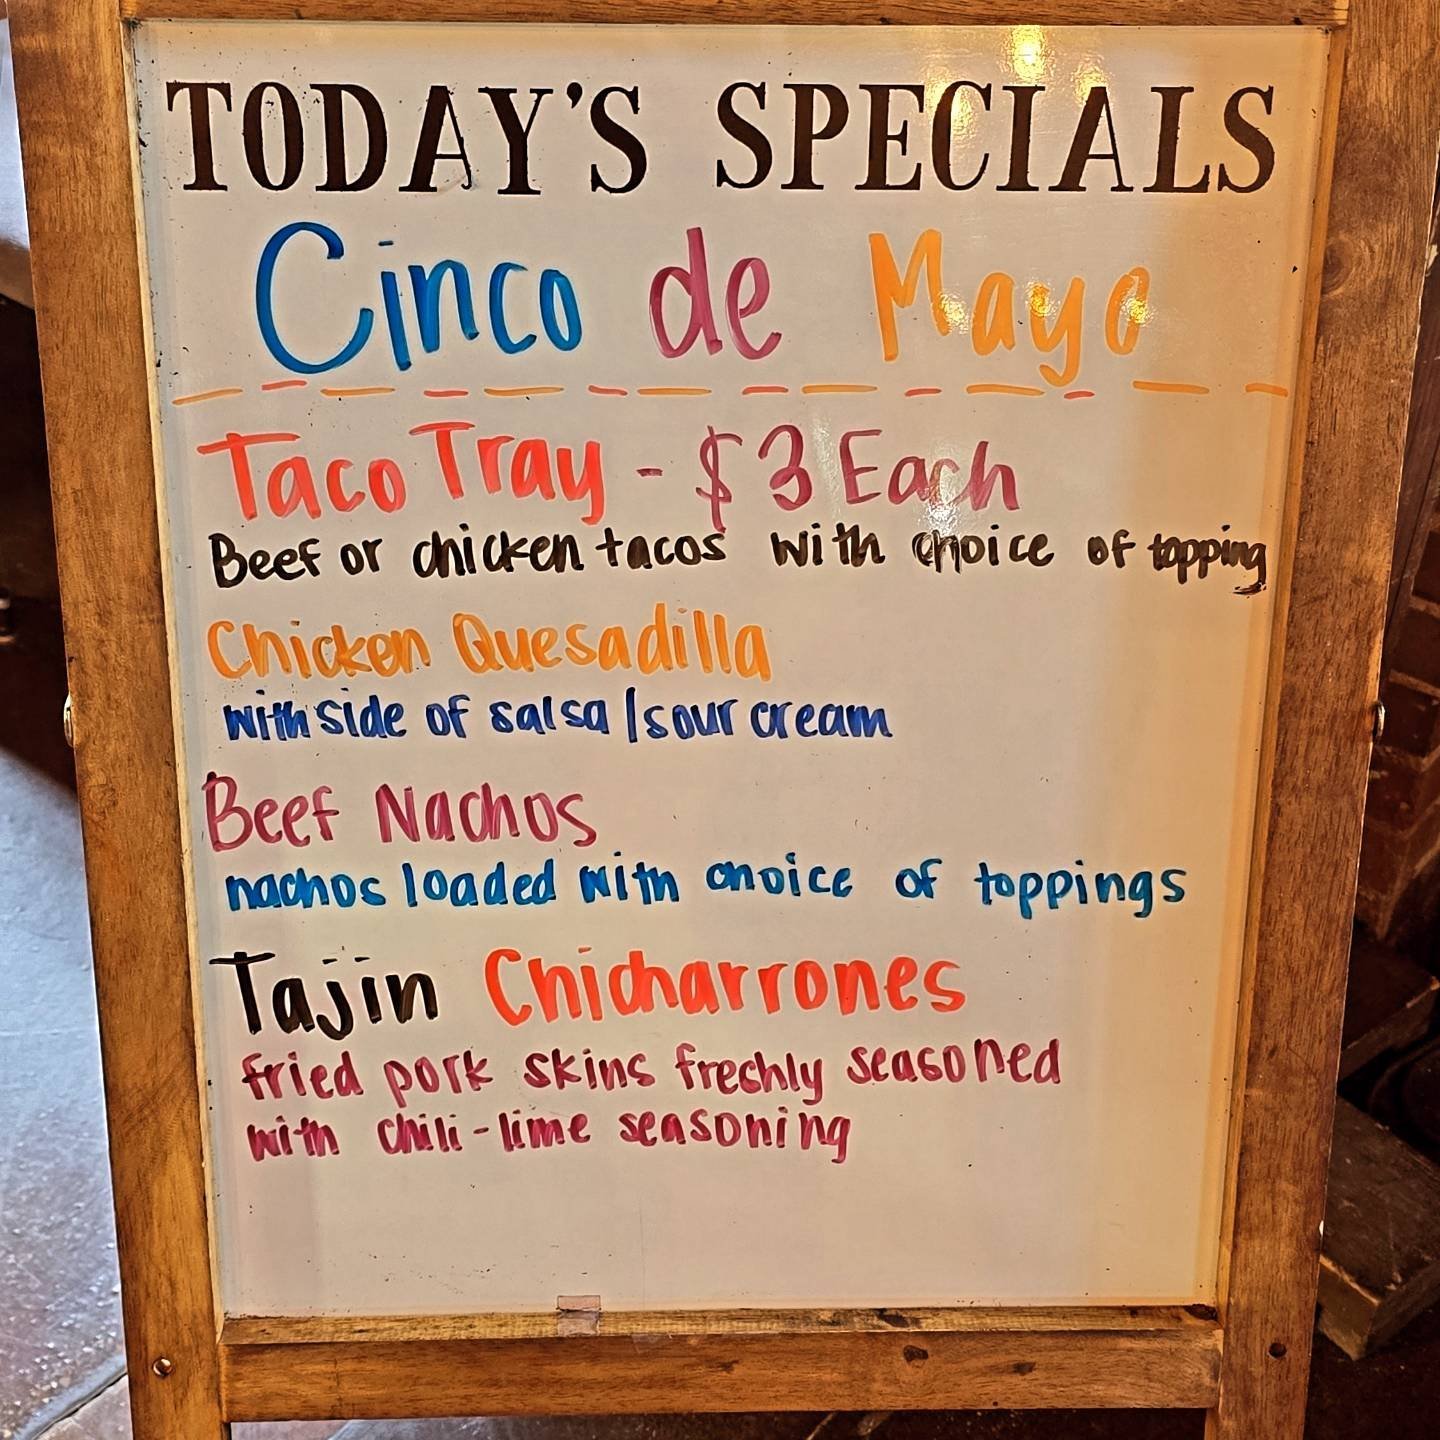 TODAY'S SPECIALS
Cinco de Mayo
Taco Tray - $3 Each
Beef or chicken tacos with choice of topping
Chicken Quesadilla
with side of salsa/sour cream
Beef Nachos
nachos loaded with choice of toppings
Tajin Chicharrones
fried pork skins freshly seasoned
with chili-lime seasoning